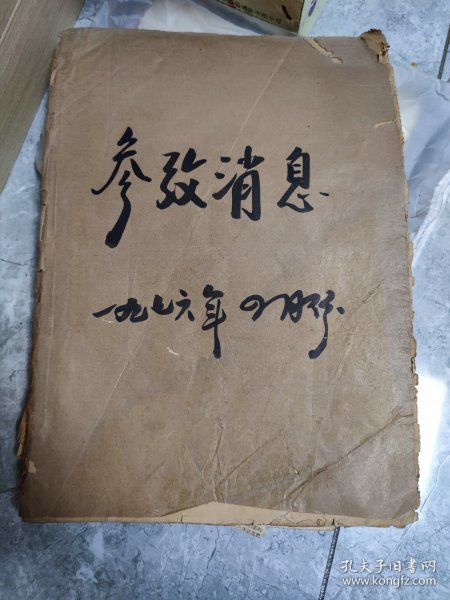 参攷消息
一九七六年四月份
孔夫子旧书网
www.kongfz.com